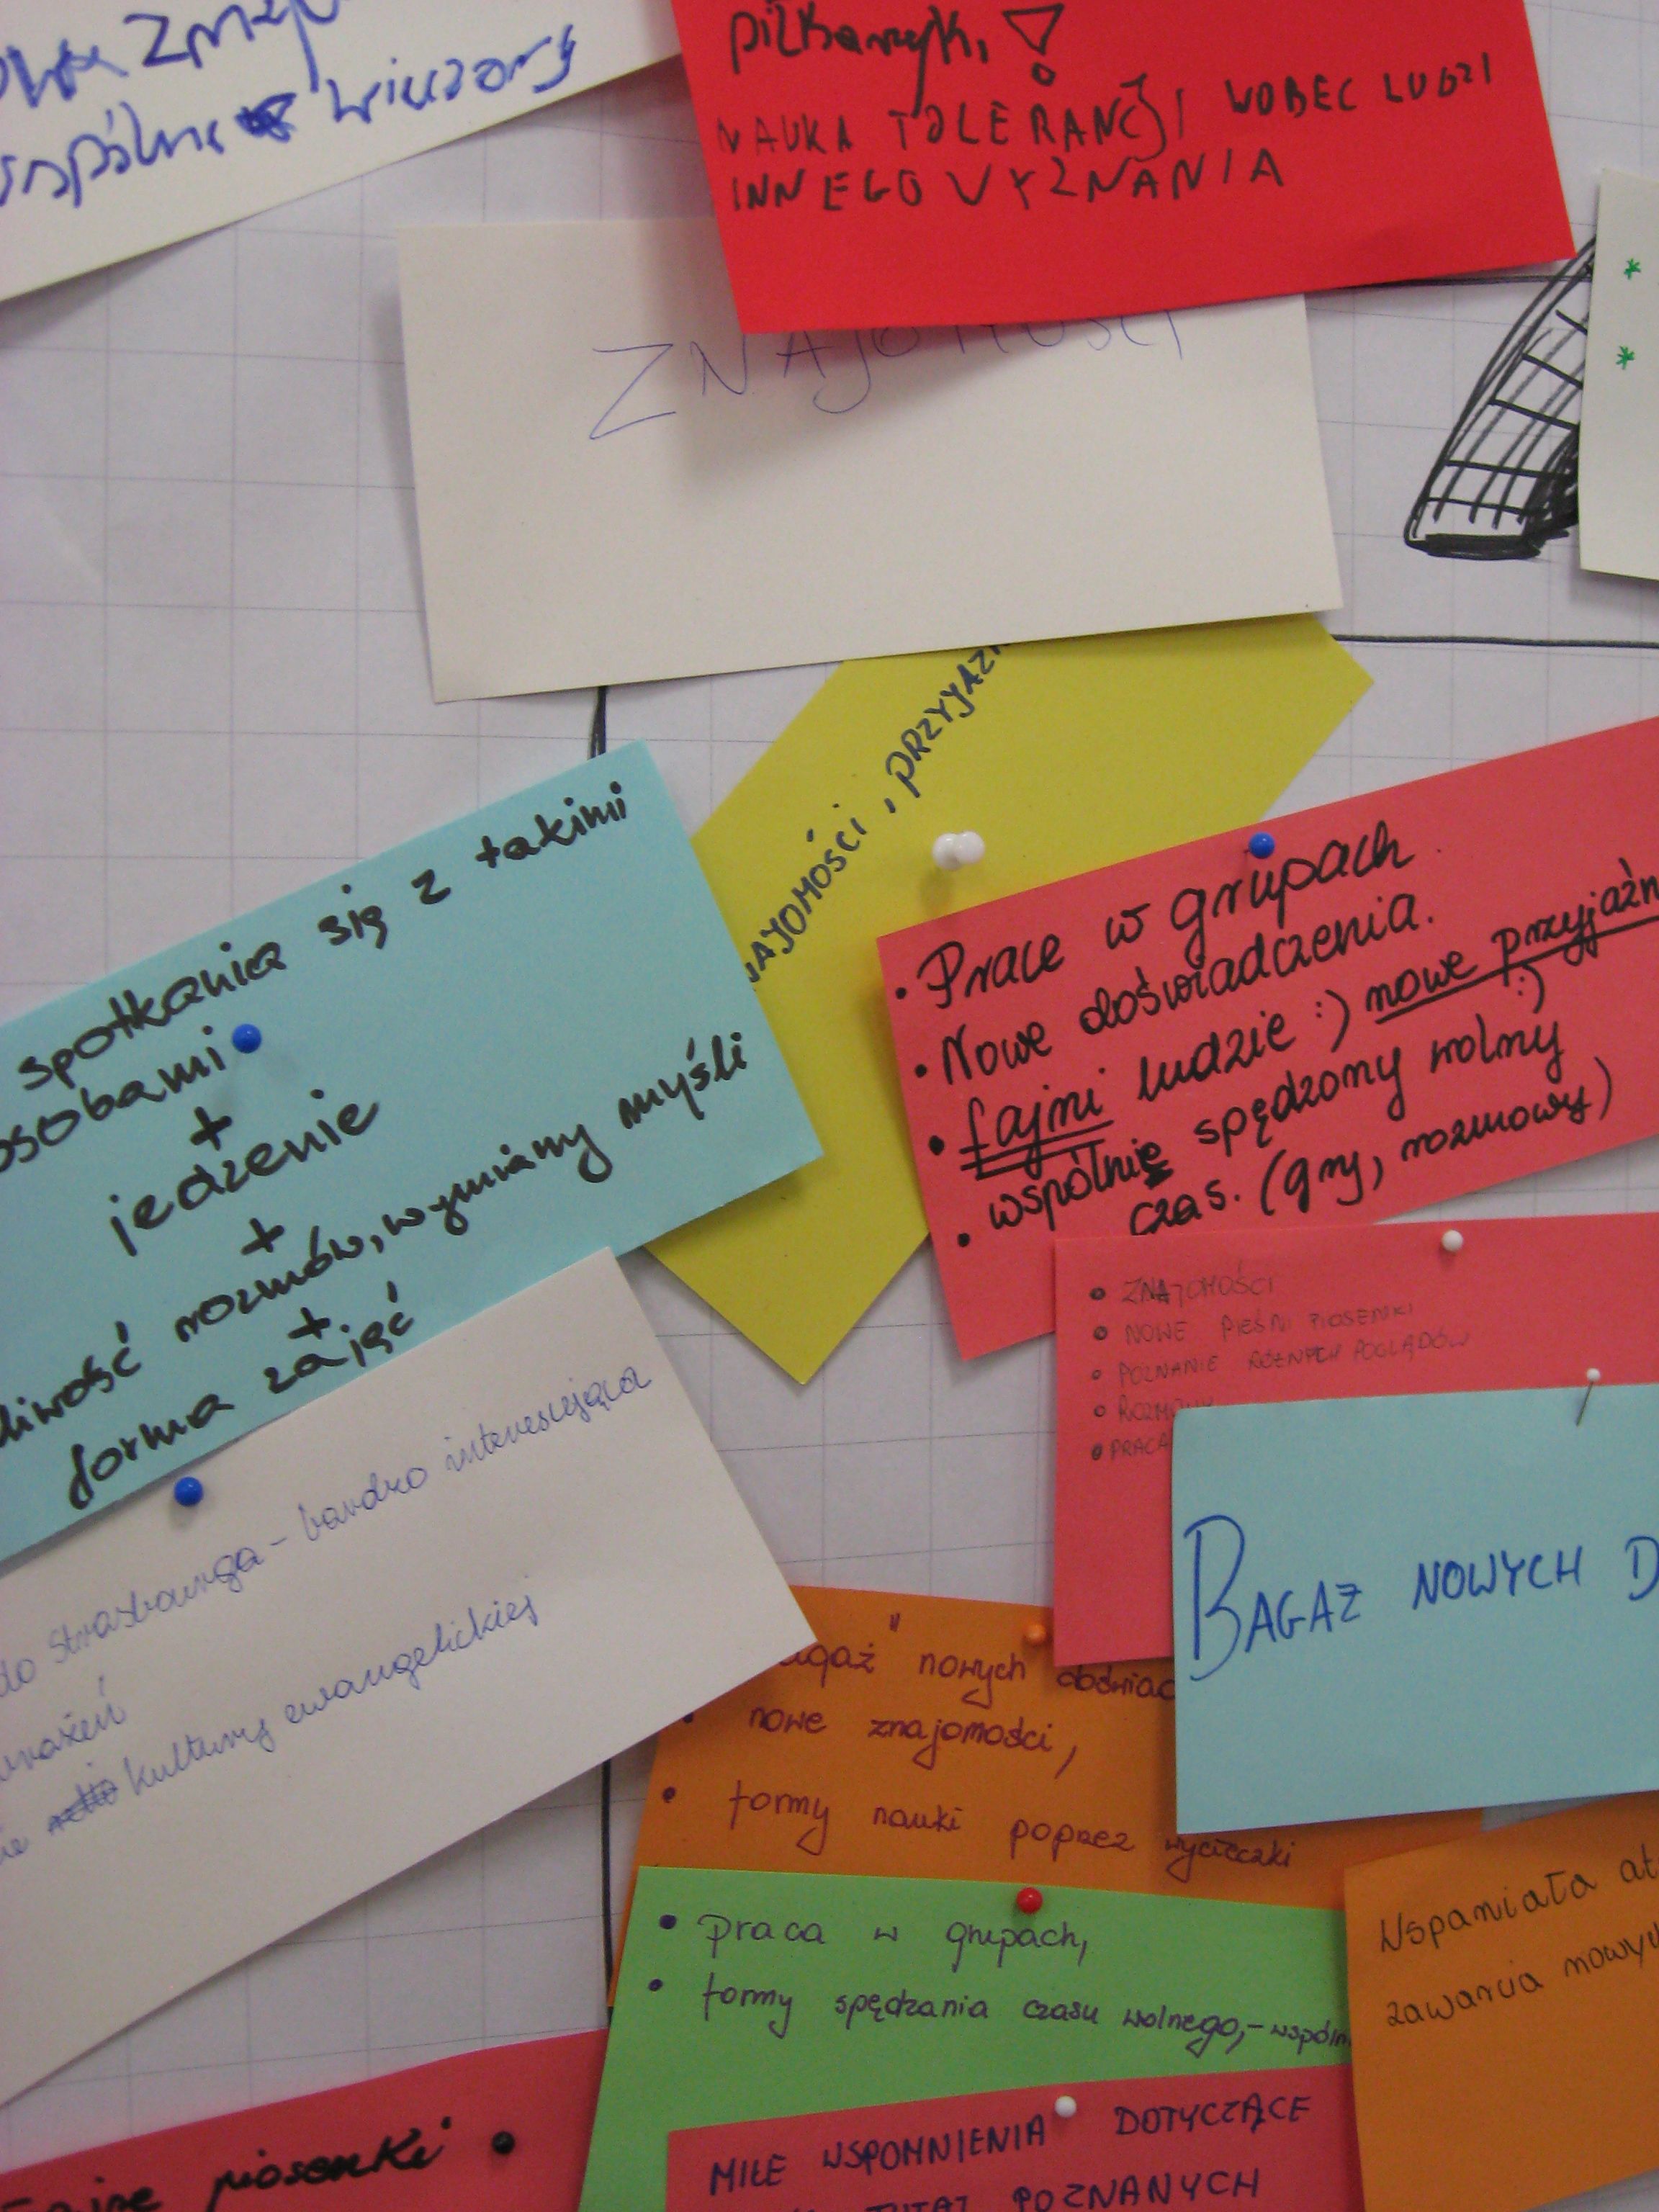 wieczory
piłkarzyk,
NAUKA TOLERANCJI WOBEC LUDZI
INNEGO WYZNANIA
ZNAJOMOŚCI
NAJOMOŚCI, PRZYJAŹN
spotkania się z takimi
osobami
+
jedzenie
+
liwość rozmów, wymiany myśli
+
forma zajęć
• Prace w grupach
• Nowe doświadczenia.
• fajni ludzie :) nowe przyjaźn
:)
• wspólnie spędzony wolny
czas. (gry, rozmowy)
• ZNAJOMOŚCI
• NOWE PIEŚNI PIOSENKI
• POZNANIE RÓŻNYCH POGLĄDÓW
• ROZMOWY
• PRACA
BAGAŻ NOWYCH D
do Strasbourga - bardzo interesująca
wrażeń
kultury ewangelickiej
agaż" nowych doświad
• nowe znajomości,
• formy nauki poprzez wycieczki
• praca w grupach,
• formy spędzania czasu wolnego, - wspóln
Wspaniała at
zawarcia nowyc
piosenki
MIŁE WSPOMNIENIA DOTYCZĄCE
TUTAJ POZNANYCH